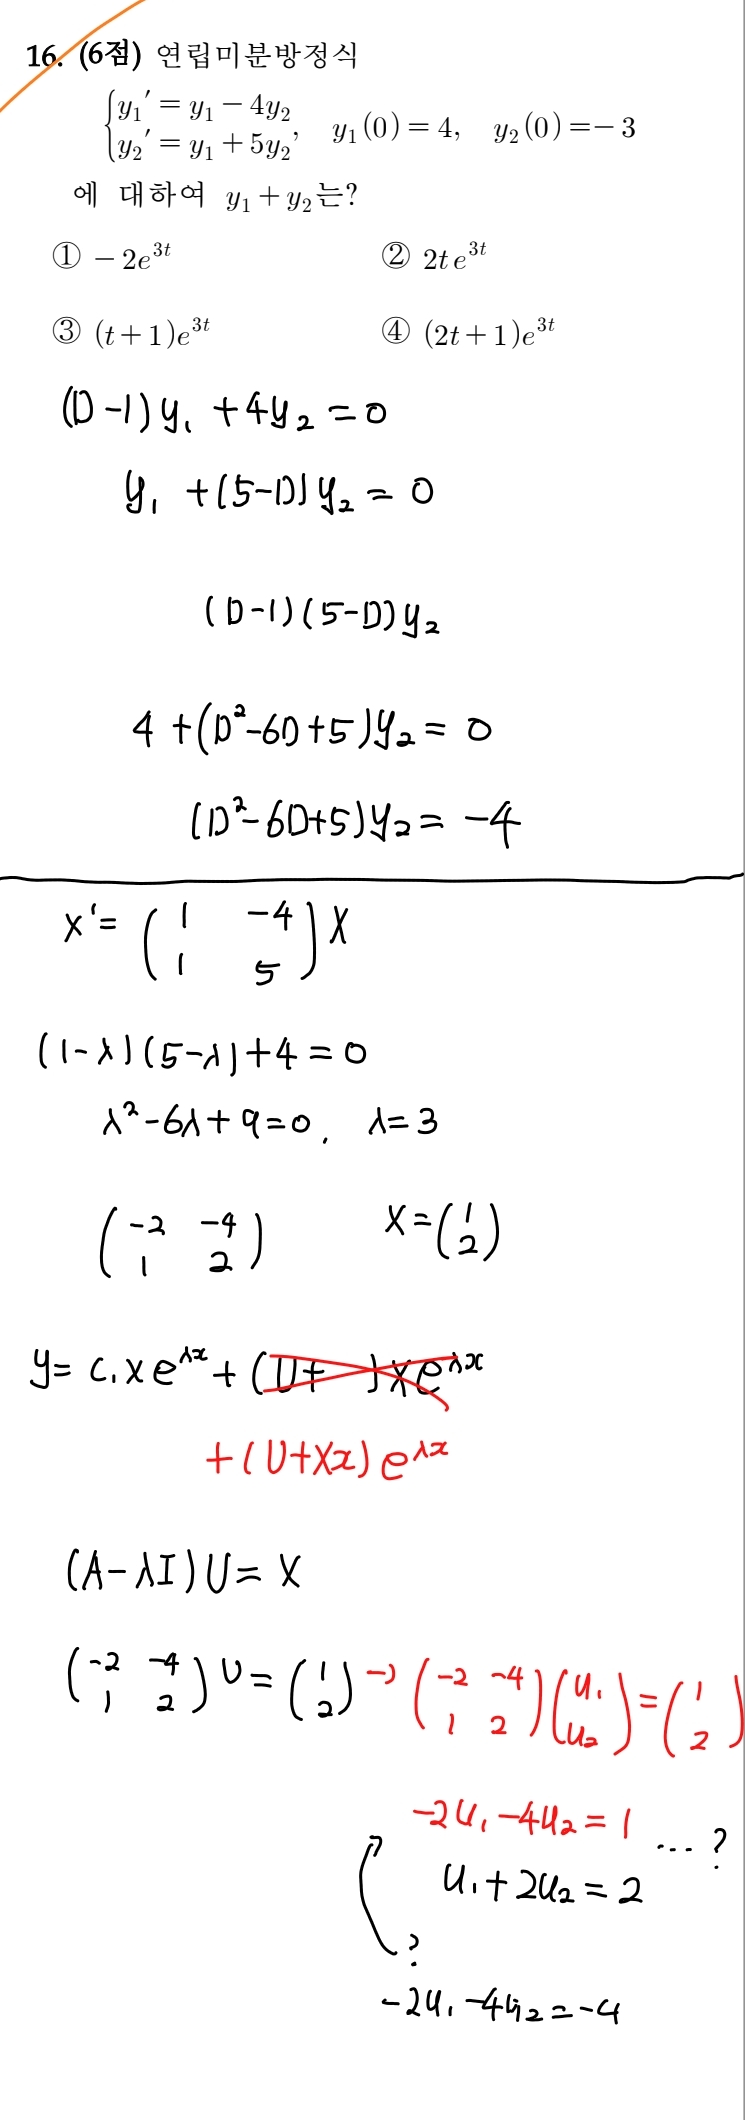 16. (6점) 연립미분방정식
{ y₁′ = y₁ − 4y₂
y₂′ = y₁ + 5y₂ , y₁(0) = 4, y₂(0) = − 3
에 대하여 y₁ + y₂는?
① − 2e^{3t} ② 2t e^{3t}
③ (t + 1)e^{3t} ④ (2t + 1)e^{3t}
(D-1) y₁ + 4y₂ = 0
y₁ + (5-D) y₂ = 0
(D-1)(5-D) y₂
4 + (D²-6D+5) y₂ = 0
(D²-6D+5) y₂ = -4
X' = (1 -4
1 5) X
(1-λ)(5-λ)+4 = 0
λ²-6λ+9=0, λ=3
(-2 -4
1 2) X = (1
2)
y = c₁ x e^{λx} + (U+ )xe^{λx}
+ (U+Xx) e^{λx}
(A-λI) U = X
(-2 -4
1 2) U = (1
2) → (-2 -4
1 2) (u₁
u₂) = (1
2)
-2u₁ -4u₂ = 1
... ?
u₁ + 2u₂ = 2
?
-2u₁ -4u₂ = -4